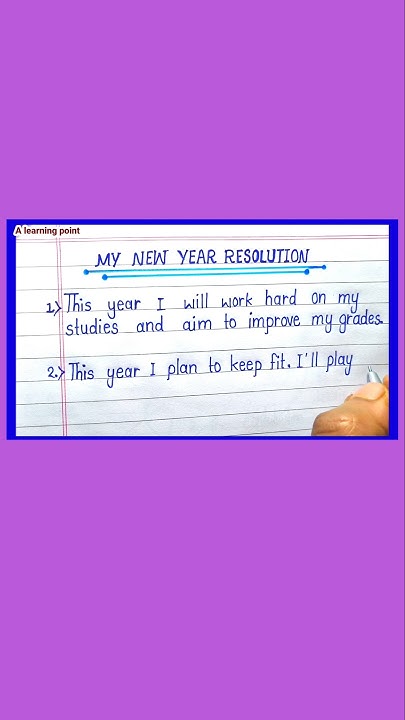 A learning point
MY NEW YEAR RESOLUTION
1) This year I will work hard on my
studies and aim to improve my grades.
2) This year I plan to keep fit. I'll play